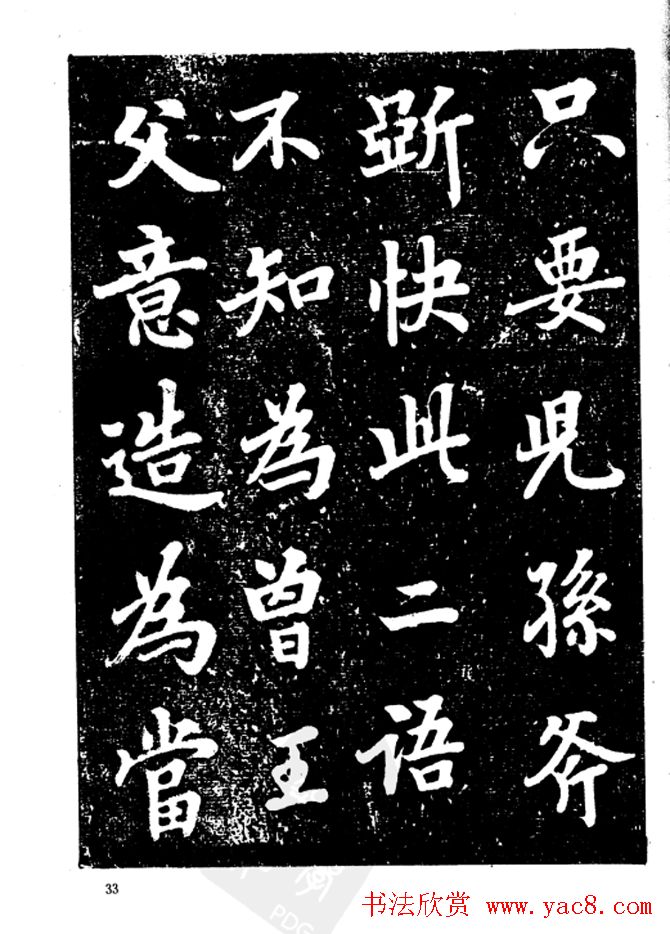 只要兒孫斧
斲快此二語
不知為曾王
父意造為當
33
PDG
书法欣赏 www.yac8.com